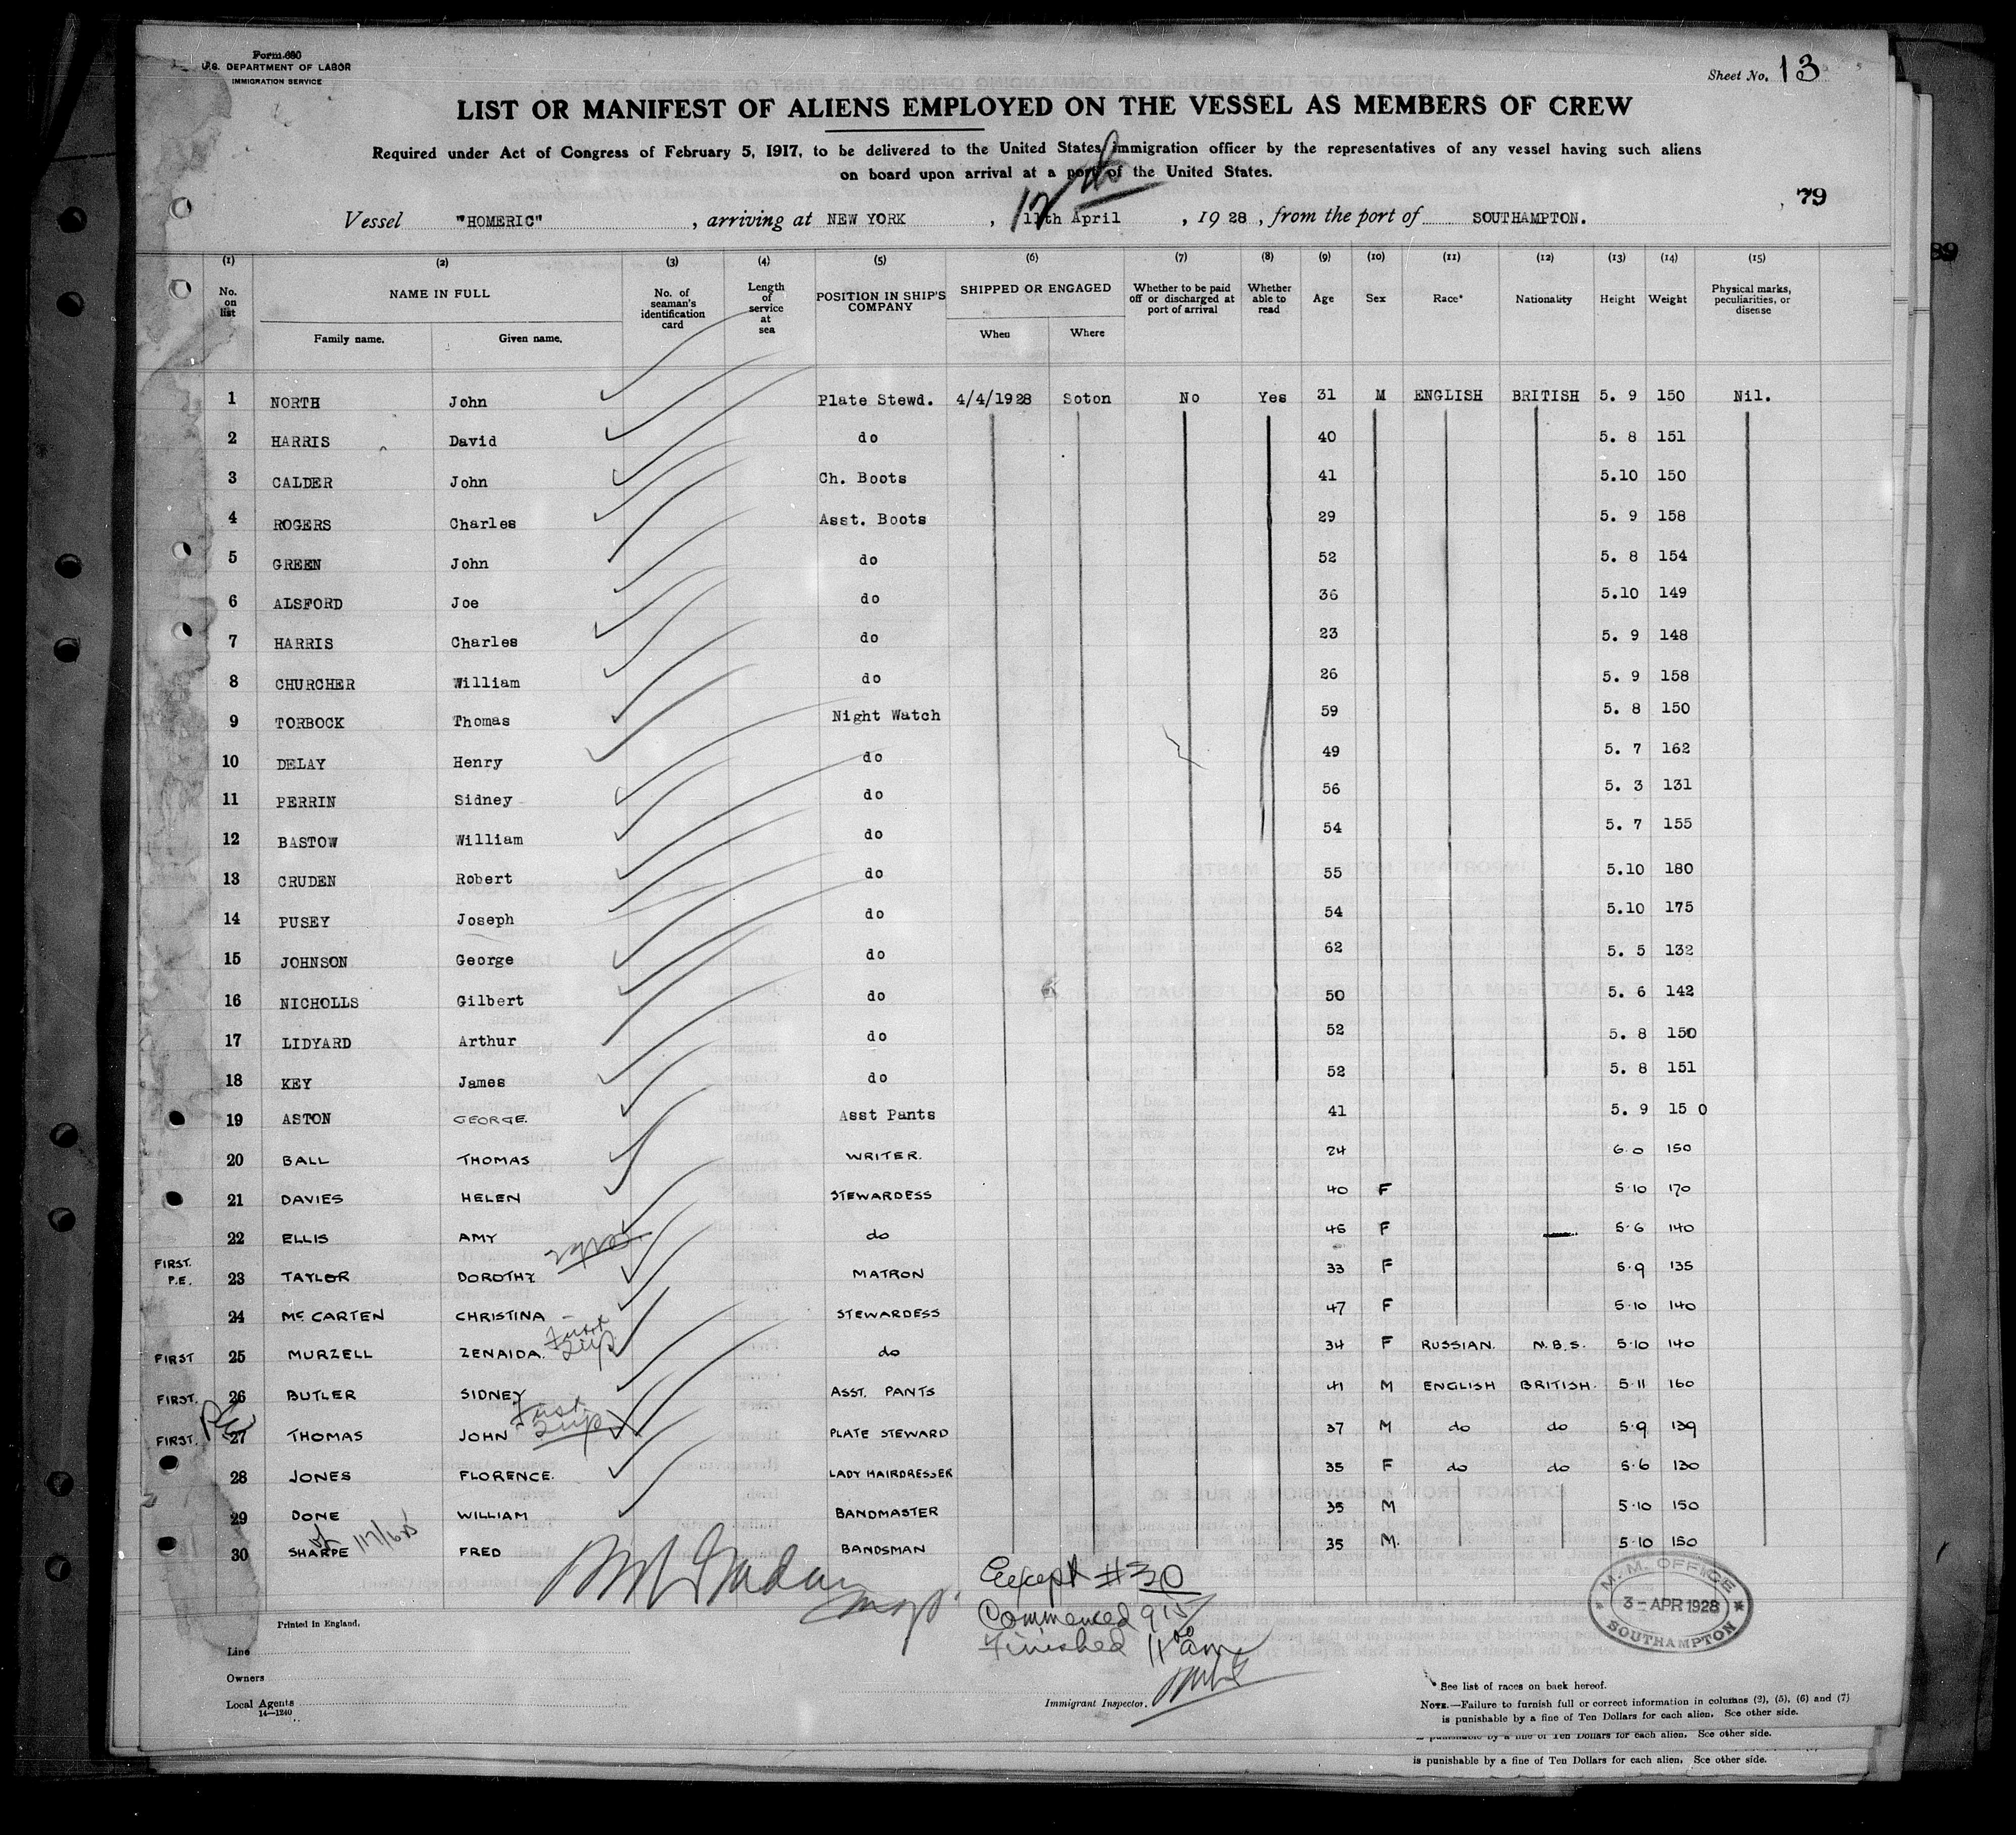 Form 680
U.S. DEPARTMENT OF LABOR
IMMIGRATION SERVICE
Sheet No. 13
LIST OR MANIFEST OF ALIENS EMPLOYED ON THE VESSEL AS MEMBERS OF CREW
Required under Act of Congress of February 5, 1917, to be delivered to the United States immigration officer by the representatives of any vessel having such aliens
on board upon arrival at a port of the United States.
79
89
Vessel "HOMERIC" , arriving at NEW YORK , 11th April , 1928 , from the port of SOUTHAMPTON.
12
(1) (2) (3) (4) (5) (6) (7) (8) (9) (10) (11) (12) (13) (14) (15)
No. on list NAME IN FULL Family name. Given name. No. of seaman's identification card Length of service at sea POSITION IN SHIP'S COMPANY SHIPPED OR ENGAGED When Where Whether to be paid off or discharged at port of arrival Whether able to read Age Sex Race* Nationality Height Weight Physical marks, peculiarities, or disease
1 NORTH John Plate Stewd. 4/4/1928 Soton No Yes 31 M ENGLISH BRITISH 5. 9 150 Nil.
2 HARRIS David do 40 5. 8 151
3 CALDER John Ch. Boots 41 5.10 150
4 ROGERS Charles Asst. Boots 29 5. 9 158
5 GREEN John do 52 5. 8 154
6 ALSFORD Joe do 36 5.10 149
7 HARRIS Charles do 23 5. 9 148
8 CHURCHER William do 26 5. 9 158
9 TORBOCK Thomas Night Watch 59 5. 8 150
10 DELAY Henry do 49 5. 7 162
11 PERRIN Sidney do 56 5. 3 131
12 BASTOW William do 54 5. 7 155
13 CRUDEN Robert do 55 5.10 180
14 PUSEY Joseph do 54 5.10 175
15 JOHNSON George do 62 5. 5 132
16 NICHOLLS Gilbert do 50 5. 6 142
17 LIDYARD Arthur do 52 5. 8 150
18 KEY James do 52 5. 8 151
19 ASTON GEORGE. Asst Pants 41 5. 9 15 0
20 BALL THOMAS WRITER. 24 6.0 150
21 DAVIES HELEN STEWARDESS 40 F 5.10 170
22 ELLIS AMY do 45 F 5.6 140
FIRST. P.E. 23 TAYLOR DOROTHY MATRON 33 F 5.9 135
24 McCARTEN CHRISTINA STEWARDESS 47 F 5.10 140
FIRST 25 MURZELL ZENAIDA. First trip do 34 F RUSSIAN. N.B.S. 5.10 140
FIRST. 26 BUTLER SIDNEY ASST. PANTS 41 M ENGLISH BRITISH. 5.11 160
FIRST. 27 THOMAS JOHN First trip PLATE STEWARD 37 M do do 5.9 139
28 JONES FLORENCE. LADY HAIRDRESSER 35 F do do 5.6 130
29 DONE WILLIAM BANDMASTER 35 M 5.10 150
30 SHARPE FRED BANDSMAN 35 M. 5.10 150
Except #30
Commenced 9 15
Finished 11 00 am
M.M. OFFICE
3 - APR 1928
SOUTHAMPTON
Printed in England.
Line
Owners
Local Agents
14—1240
Immigrant Inspector.
* See list of races on back hereof.
NOTE.—Failure to furnish full or correct information in columns (2), (5), (6) and (7)
is punishable by a fine of Ten Dollars for each alien. See other side.
is punishable by a fine of Ten Dollars for each alien. See other side.
is punishable by a fine of Ten Dollars for each alien. See other side.